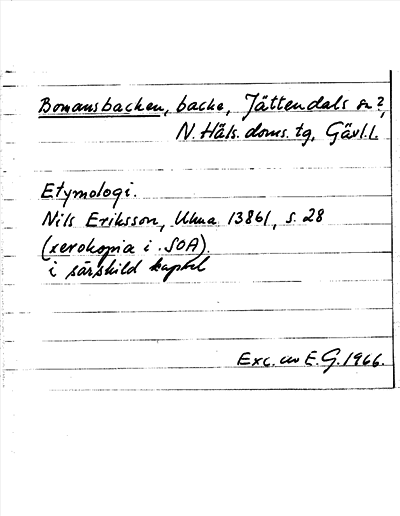 Bomansbacken, backe, Jättendals sn?,
N. Häls. doms. tg, Gävl.L
Etymologi.
Nils Eriksson, Uma 13861, s. 28
(xerokopia i SOA).
i särskild kapsel
Exc. av E.G. 1966.